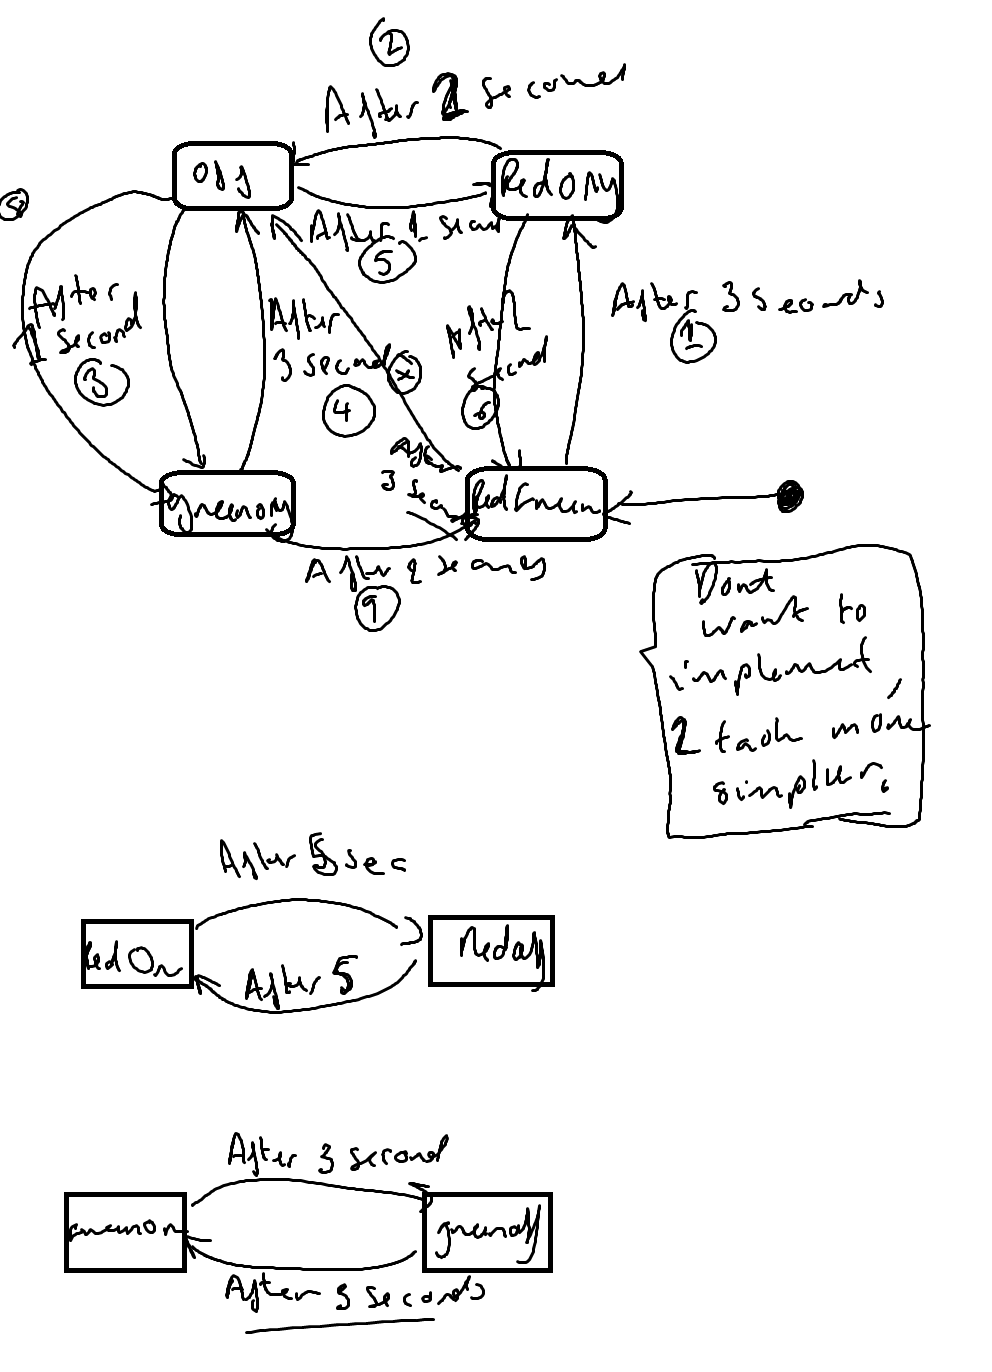 2
After 2 second
Off
RedOny
After 1 secon
5
After
1 second
3
After
3 second
4
After
second
6
After 3 seconds
1
After
3 secon
greenony
RedGreen
After 2 seconds
9
Dont
want to
implement
2 task more
simpler.
After 5 sec
Red On
Redoff
After 5
After 3 second
greenon
greenoff
After 3 seconds